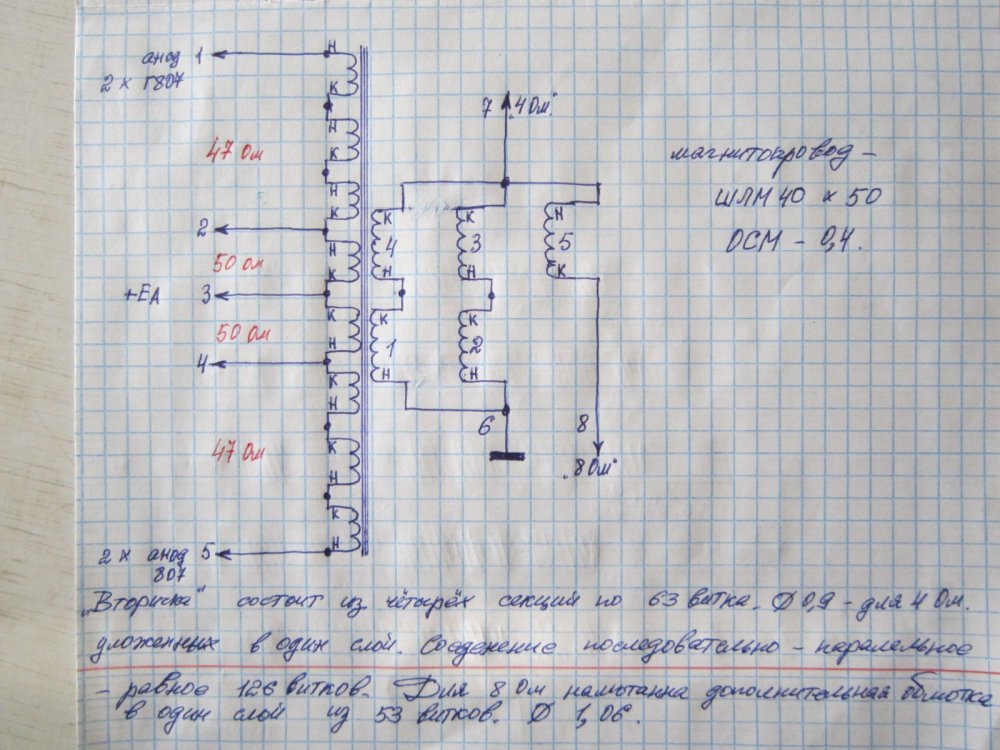 анод 1
2 х Г807
47 Ом
2
50 ом
+EA 3
50 Ом
4
47 Ом
2 х анод 5
807
Н
К
Н
К
Н
К
Н
К
К
Н
К
Н
К
Н
К
Н
7 "4 Ом"
К
4
Н
К
1
Н
К
3
Н
К
2
Н
Н
5
К
6
8
"8 Ом"
магнитопровод –
ШЛМ 40 х 50
ОСМ – 0,4.
„Вторичка" состоит из чётырёх секций по 63 витка. Ø 0,9 – для 4 Ом.
уложенных в один слой. Соеденение последовательно – паралельное
– равное 126 витков. Для 8 Ом намотанна дополнительная обмотка
в один слой из 53 витков. Ø 1,06.